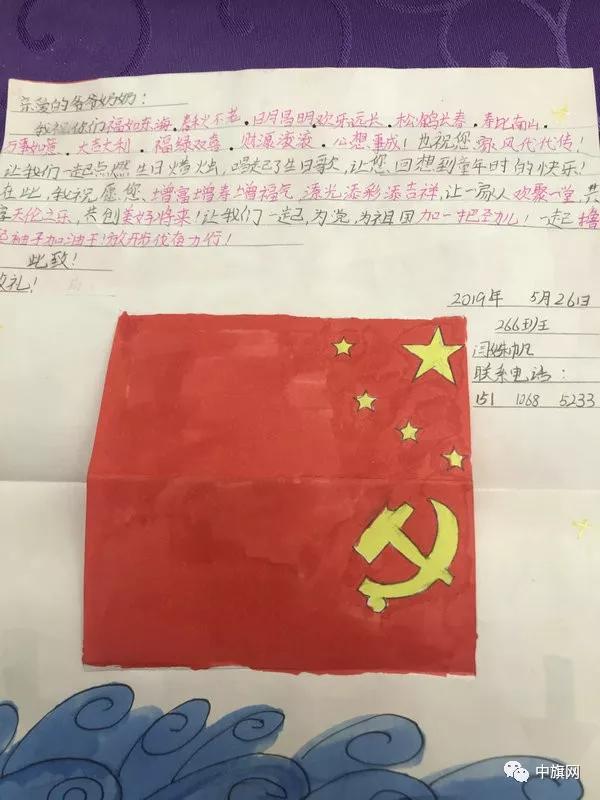 亲爱的爷爷奶奶：
我祝你们福如东海.春秋不老.日月昌明欢乐远长.松鹤长春.寿比南山.
万事如意.大吉大利.福绿双喜.财源滚滚.心想事成！也祝您家风代代传！
让我们一起点燃生日蜡火，唱起了生日歌，让您回想到童年时的快乐！
在此，我祝愿您增富增寿增福气，添光添彩添吉祥，让一家人欢聚一堂，共
享天伦之乐，共创美好将来！让我们一起，为党，为祖国加一把劲儿！一起撸
起袖子加油干！放开步伐奋力行！
此致！
敬礼！
2019年 5月26日
266班王
闫姝帆
联系电话：
151 1068 5233
中旗网